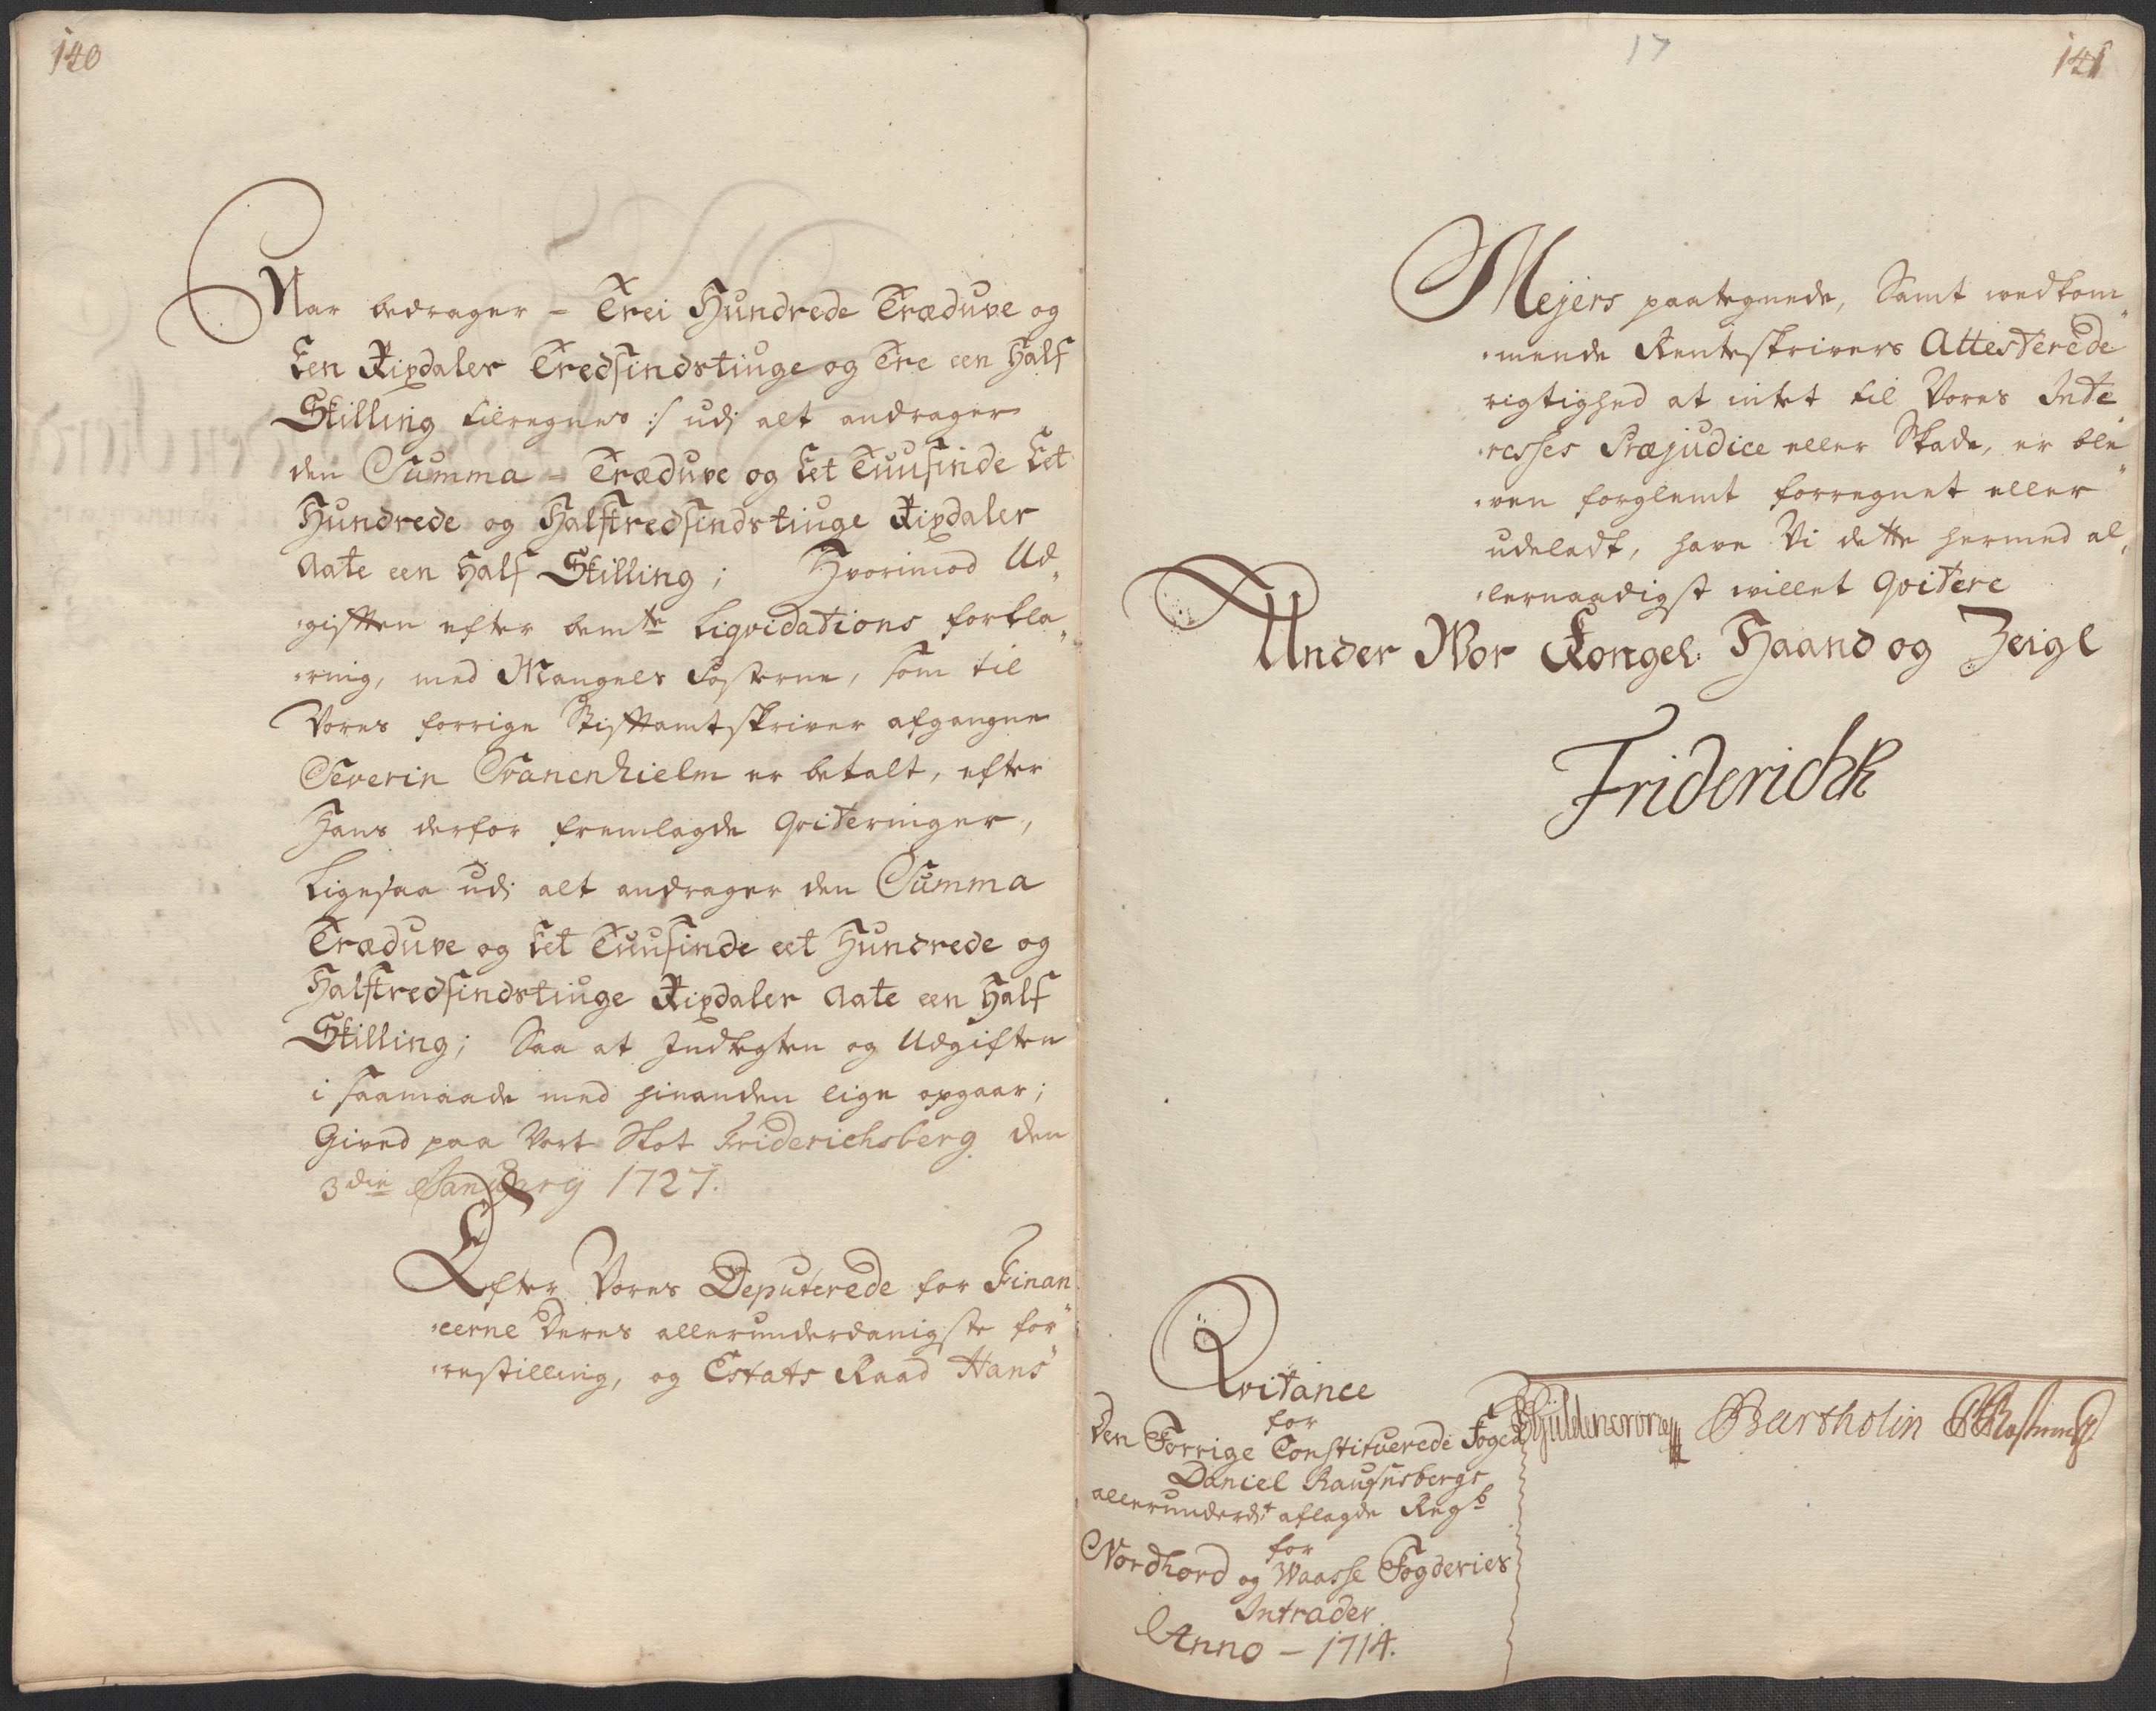 140
Aar bedrager - Trei Hundrede Træduve og
Een Rixdaler Tredsindstiuge og Tre een Half
Skilling tilregnes :/ udj alt andrager
den Summa - Træduve og Eet Tuusinde Eet
Hundrede og Halftredsindstiuge Rixdaler
Aate een Half Skilling; Hvorimod Ud„
„giften efter bemte Liqvidations forkla„
„ring, med Mangels Posterne, som til
Vores forrige Stiftamtskriver afgangne
Severin Svanenhielm er betalt, efter
Hans derfor fremlagde Qviteringer,
Ligesaa udj alt andrager den Summa
Træduve og Eet Tuusinde eet Hundrede og
Halftredsindstiuge Rixdaler Aate een Half
Skilling; Saa at Indtegten og Udgiften
i saamaade med hinanden lige opgaar;
Gived paa Vort Slot Friderichsberg den
3die Januarij 1727.
Efter Vores Deputerede for Finan„
„cerne Deres allerunderdanigste for„
„restilling, og Estats Raad Hans
17
141
Mejers paategnede, Samt vedkom„
„mende Renteskrivers Attesterede
rigtighed at intet til Vores Inte„
„resses Præjudice eller Skade, er ble„
„ven forglemt forregnet eller
udeladt, have Vi dette hermed al„
„lernaadigst villet Qvitere
Under Vor Kongel: Haand og Zeigl
Friderich R
Qvitance
for
Den Forrige Constituerede Foged
Daniel Raufnsbergs
allerunderdt aflagde Regsb
for
Nordhord og Waasse Fogderies
Intrader
Anno - 1714.
Güldencrone Bartholin